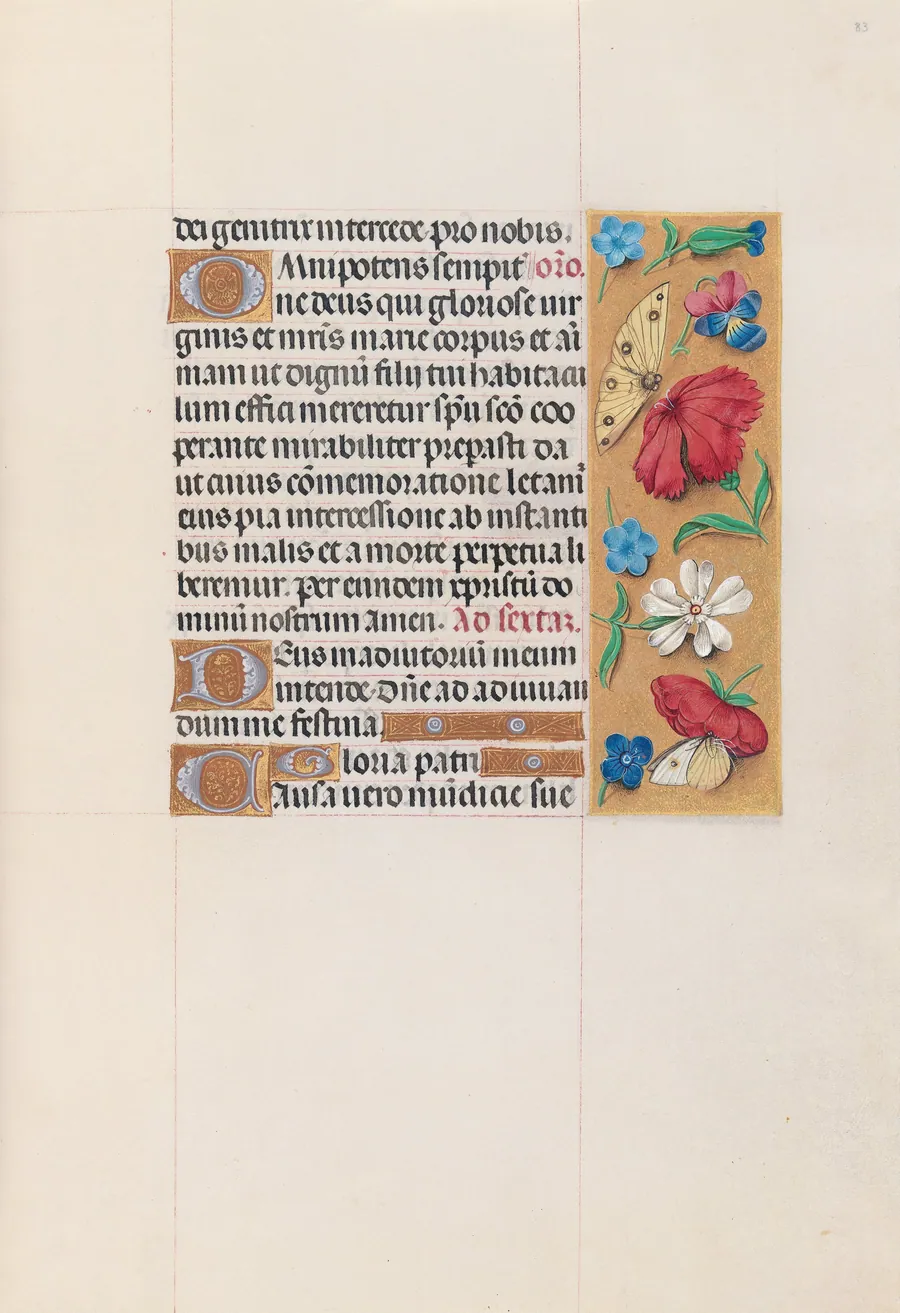 83
dei genitrix intercede pro nobis.
Omnipotens sempit̾ or̃o.
ne deus qui gloriose vir
ginis et mr̃is marie corpus et ai
mam ut dignū filij tui habitacu
lum effici mereretur spũ scō coo
perante mirabiliter preparasti da
ut cuius cōmemoratione letam̃
eius pia intercessione ab instanti
bus malis et a morte perpetua li
beremur. per eundem xpristū do
minū nostrum amen. Ad sextaꝫ.
Deus in adiutoriū meum
intende. Dñe ad adiuvan
dum me festina.
Gloria patri
Causa vero mūdicie sue